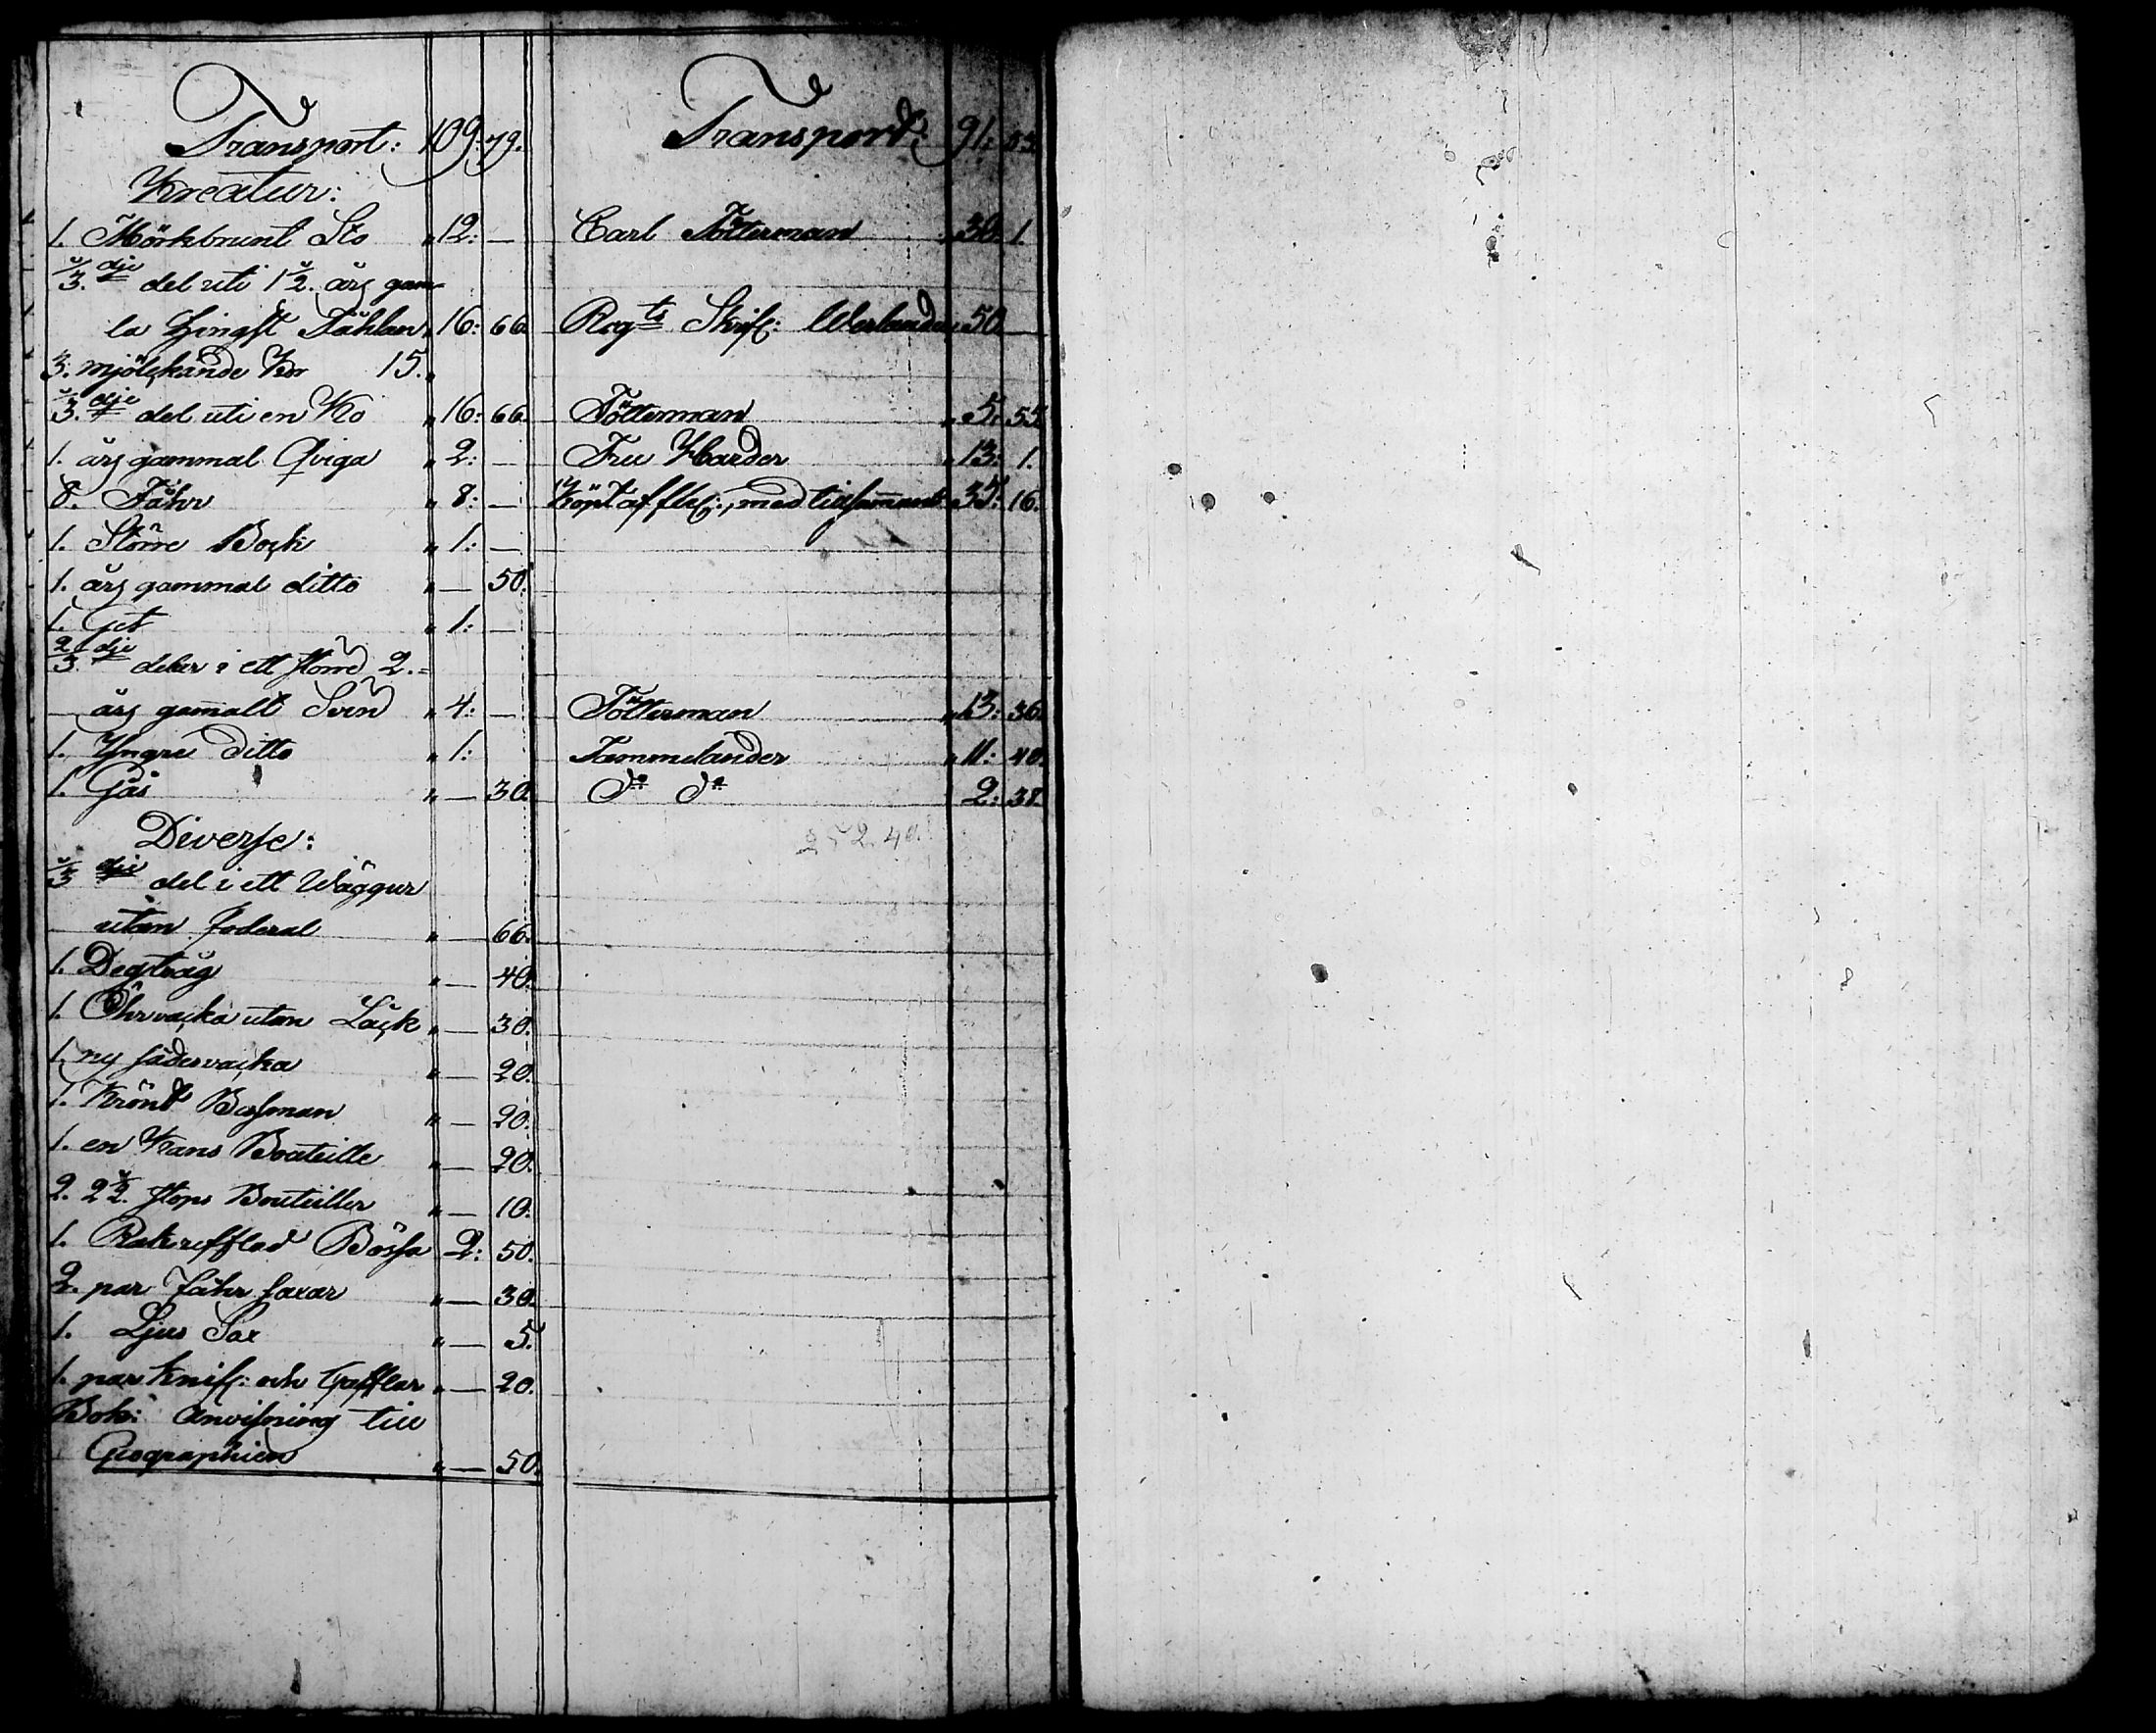 Transport: 109: 79. Transport: 91: 53.
Kreatur:
1. Mörkbrunt Sto " 12: — Carl Tötterman " 30: 1.
1/3.dje del uti 1 1/2. års gam=
la Hingst Fåhlan " 16: 66. Regts Skrif: Werlander " 50. —
3. mjölckande Kor 15. "
1/3.dje del uti en Ko " 16: 66. Tötterman " 5: 55.
1. års gammal Qviga " 2: — Fru Harder " 13: 1.
8. Fåhr " 8: — Köpt af med tillsammans 35: 16.
1. Större Bock " 1: —
1. års gammal ditto " — 50.
1. Get " 1: —
2/3.dje delar i ett större 2.=
års gamalt Svin " 4: — Tötterman " 13: 36.
1. Yngre ditto " 1: Tammelander " 11: 40.
1. Gås " — 30. do do 2: 38.
Diverse: 252.40.
1/3 dje del i ett Wäggur
utan foderal " — 66.
1. Degtråg " — 40.
1. utan Låck " — 30.
1. ny sädesvacka " — 20.
1. Krönt Bessman " — 20.
1. en Kans Bouteille " — 20.
2. 2 1/2. stops Bouteiller " — 10.
1. Rakrefflad Bössa 2: 50.
2. par fåhr saxar " — 30.
1. Ljus Sax " — 5.
1. par Knif: och Gafflar " — 20.
Bok: Anvisning till
Geographien " — 50.